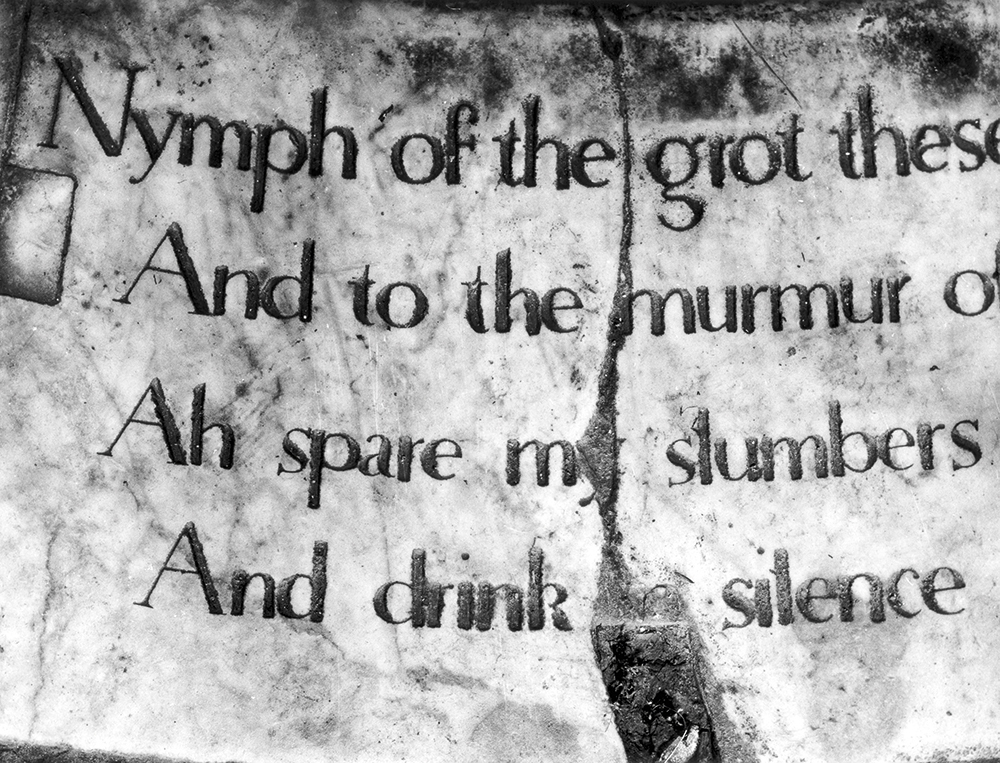 Nymph of the grot these
And to the murmur of
Ah spare my slumbers
And drink silence